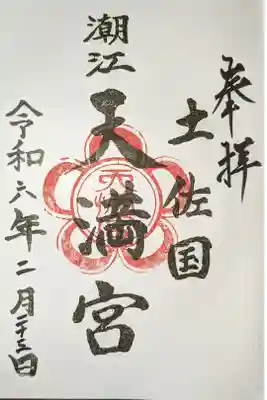 奉拝
土佐国
潮江
天満宮
令和六年二月二十三日